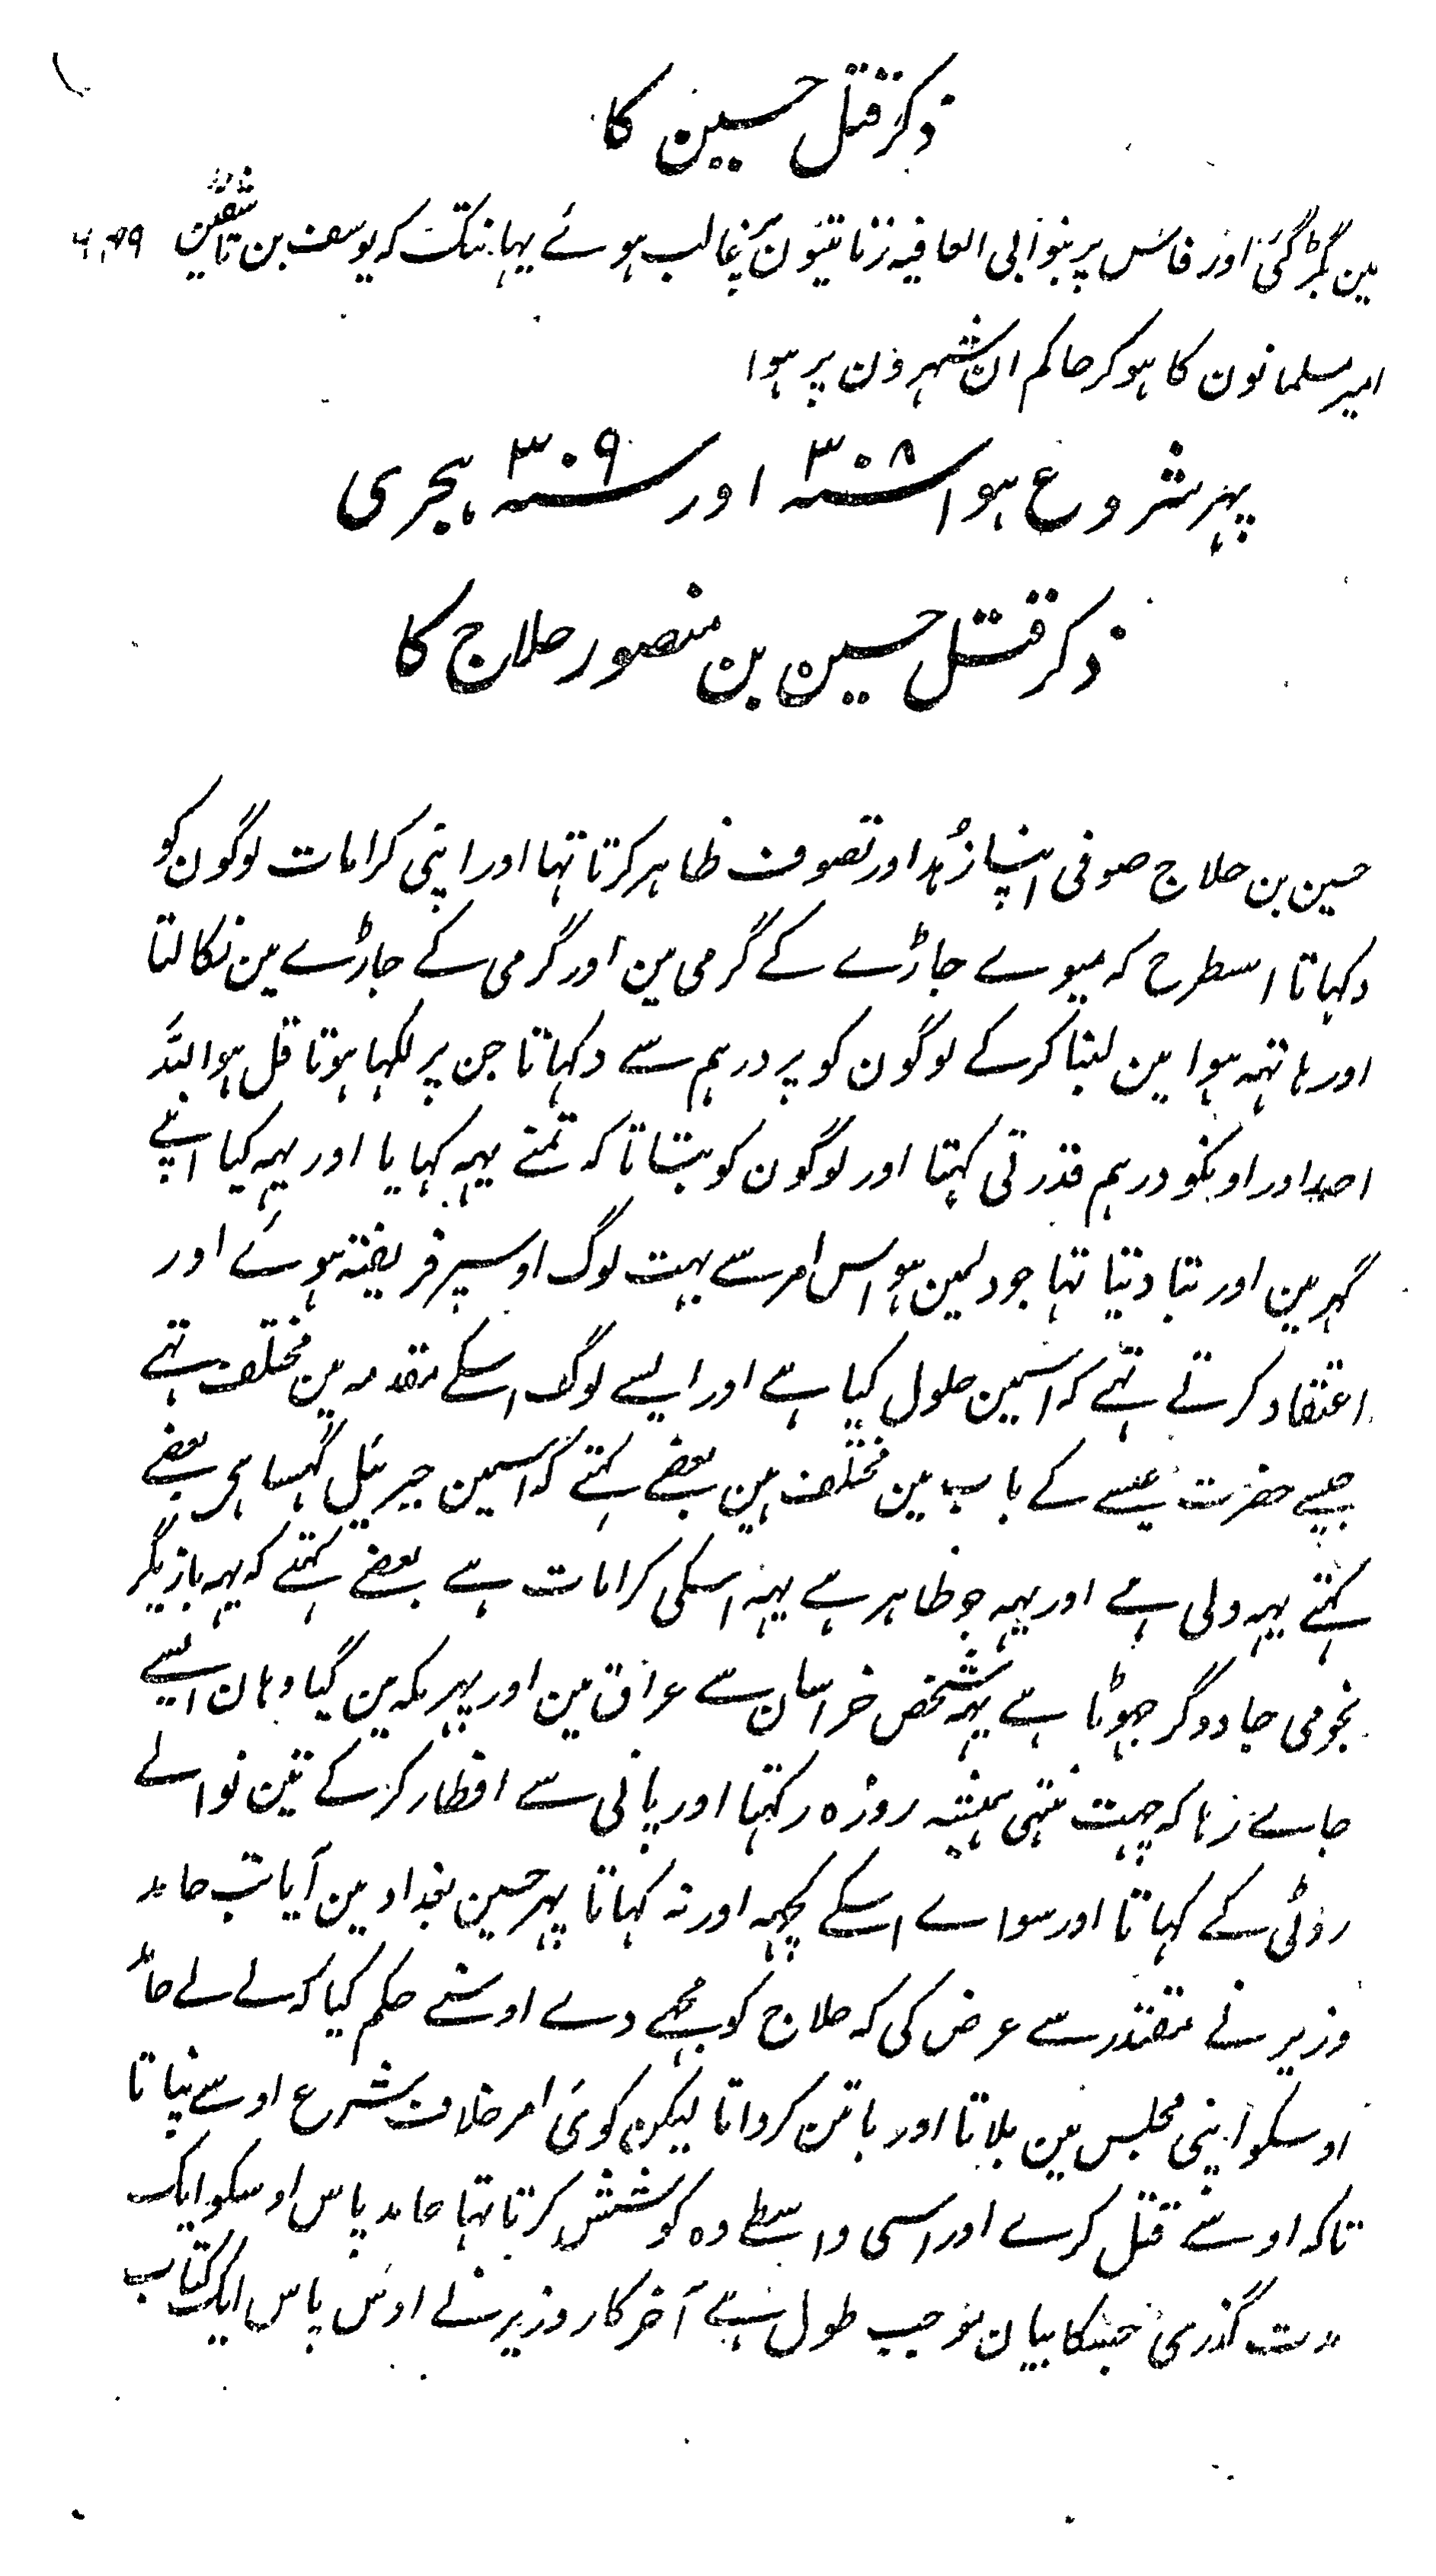 ذکر قتل حسین کا
مین بگڑ گئی اور فاس پر بنو ابی العافیہ زناتیون پر غالب ہوئے یہانتک کہ یوسف بن تاشفین
امیر مسلمانون کا ہوکر حاکم ان شہرون پر ہوا
پہر شروع ہوا سنہ ۳۰۸ اور سنہ ۳۰۹ ہجری
ذکر قتل حسین بن منصور حلاج کا
حسین بن حلاج صوفی اپنا زُہد اور تصوف ظاہر کرتا تہا اور اپنی کرامات لوگون کو
دکہاتا اسطرح کہ میوے جاڑے کے گرمی مین اور گرمی کے جاڑے مین نکالتا
اور ہاتہہ ہوا مین لیتا کرکے لوگون کو پر درہم سے دکہاتا جن پر لکہا ہوتا قل ہو اللہ
احد اور اونکو درہم قدرتی کہتا اور لوگون کو بتاتا کہ تمنے یہہ کہایا اور یہہ کیا اپنے
گہر مین اور بتا دیتا تہا جو دلمین ہو اس امر سے بہت لوگ اوسپر فریفتہ ہوئے اور
اعتقاد کرتے تہے کہ اسمین حلول کیا ہے اور ایسے لوگ اسکے مقدمہ مین مختلف تہے
جیسے حضرت عیسے کے باب مین مختلف ہین بعضے کہتے کہ اسمین جبرئیل گہسا ہی بعضے
کہتے یہہ ولی ہے اور یہہ جو ظاہر ہے یہہ اسکی کرامات ہے بعضے کہتے کہ یہہ بازیگر
نجومی جادوگر جہوٹا ہے یہہ شخص خراسان سے عراق مین اور پہر مکہ مین گیا وہان ایسے
جاے رہا کہ چہت نتہی ہمیشہ روزہ رکہتا اور پانی سے افطار کرکے تین نوالے
روٹی کے کہاتا اور سواے اسکے کچہہ اور نہ کہاتا پہر حسین بغداد مین آیا تب حامد
وزیر نے مقتدر سے عرض کی کہ حلاج کو مجھے دے اوسنے حکم کیا کہ لے لے حامد
اوسکو اپنی مجلس مین بلاتا اور باتن کرواتا لیکن کوئی امر خلاف شرع اوسے نپاتا
تاکہ اوسے قتل کرے اور اسی واسطے وہ کوشش کرتا تہا حامد پاس اوسکو ایک
مدت گذری جسکا بیان موجب طول ہے آخرکار وزیر نے اوس پاس ایک کتاب